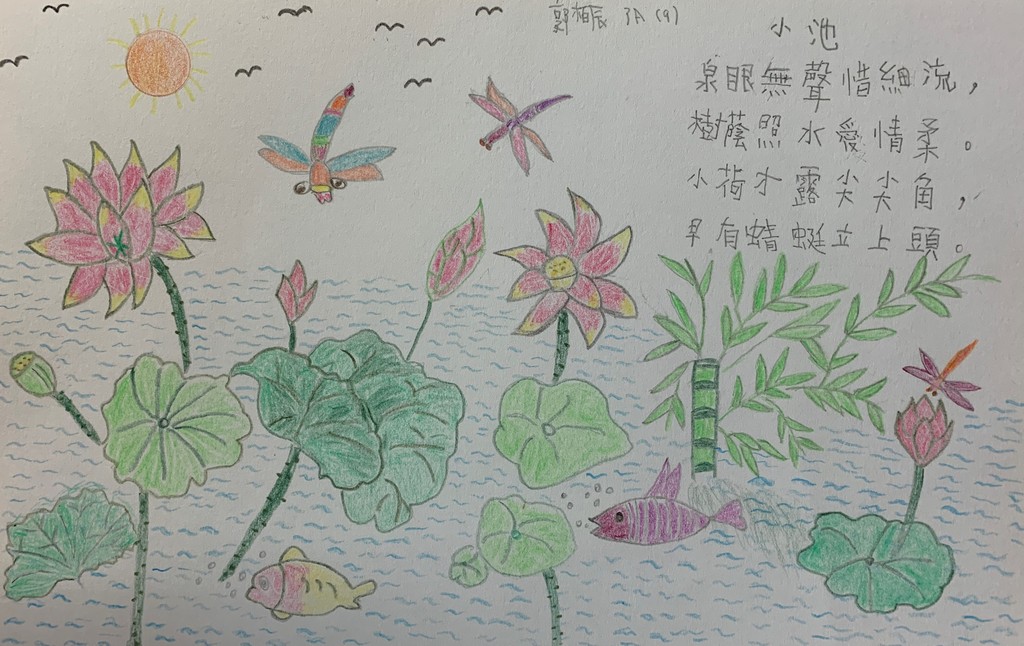 3A (9)
小池
泉眼無聲惜細流，
樹蔭照水愛情柔。
小荷才露尖尖角，
早有蜻蜓立上頭。